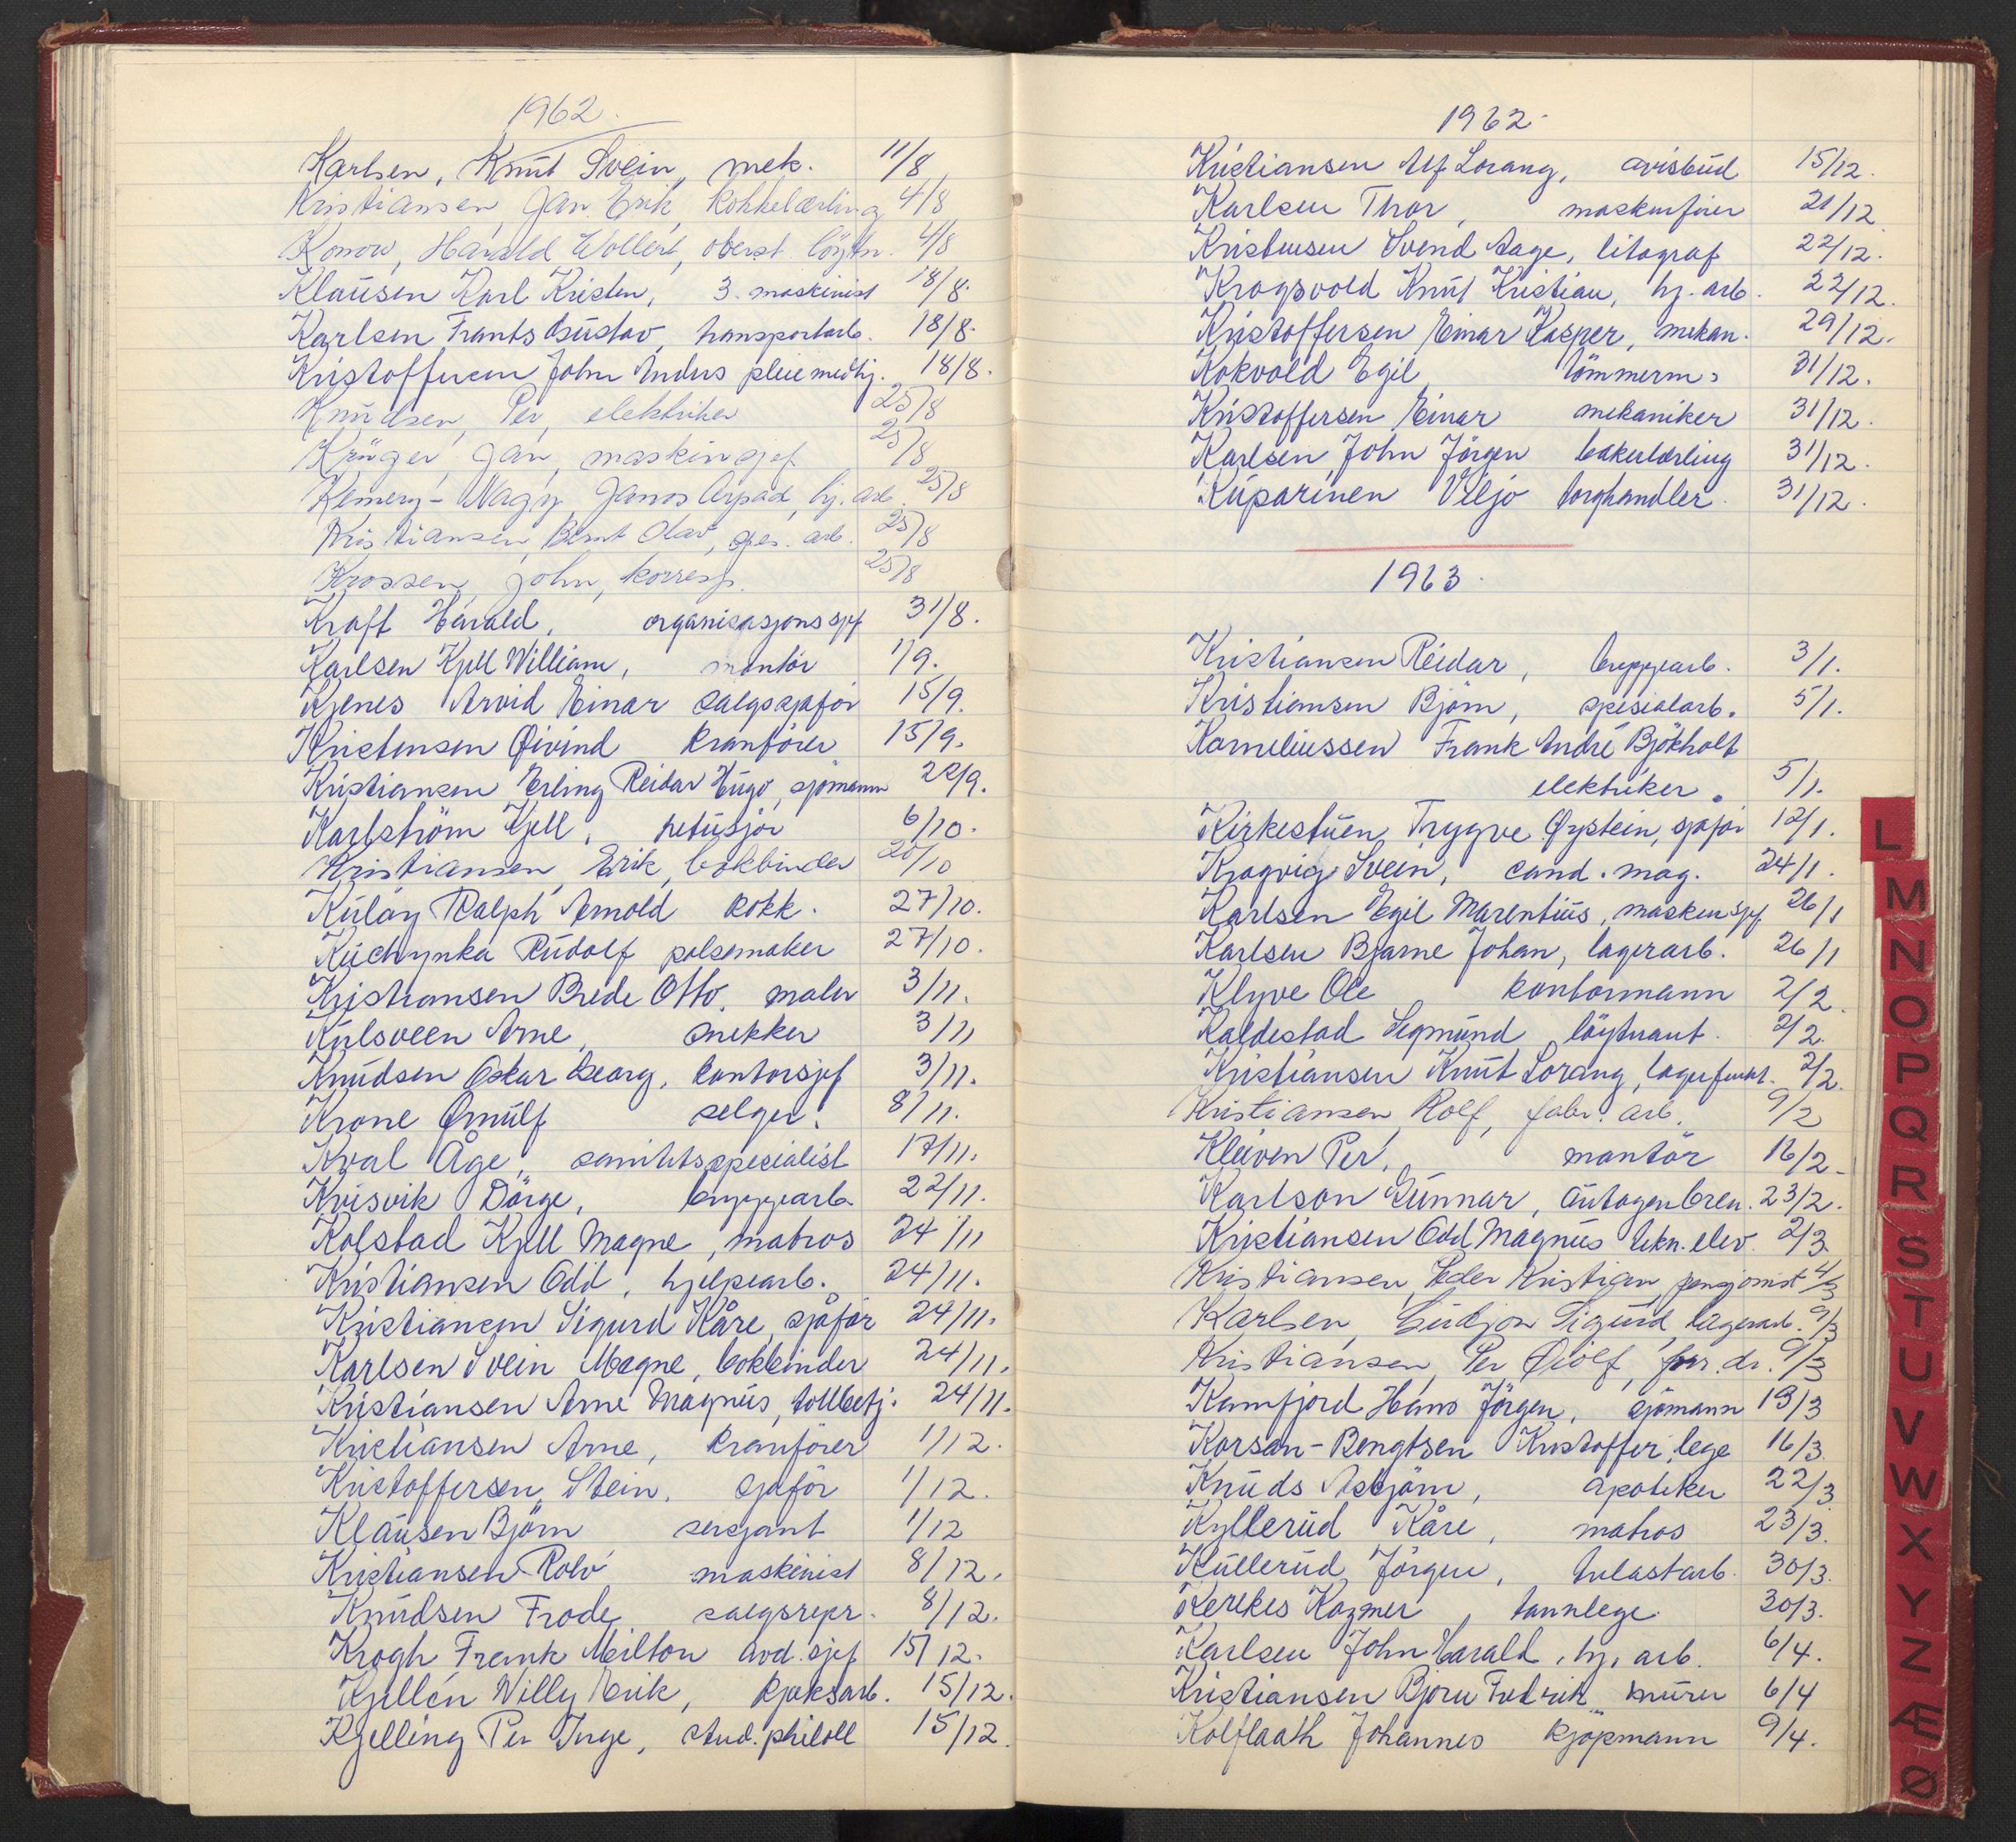 1962.
Karlsen, Knut Svein, mek. 11/8
Kristiansen, Jan Erik, kokkelærling 4/8
Konow, Harald Wollert, oberst löytn. 4/8
Klausen Karl Kristen, 3. maskinist 18/8.
Karlsen Frants Gustav, transportarb. 18/8.
Kristoffersen John Anders pleiemedhj. 18/8.
Knudsen, Per, elektriker 25/8
Krüger, Jan, maskinsjef 25/8
Kemeny-Nagy, Janos Arpad, hj. arb. 25/8
Kristiansen, Bernt Olav, spes. arb. 25/8
Krossen, John, korresp. 25/8
Kraft Harald, organisasjonssjef 31/8.
Karlsen Kjell William, montör 1/9.
Kjenes Arvid Einar salgssjaför 15/9.
Kristensen Øivind kranförer 15/9.
Kristiansen Erling Reidar Hugo, sjömann 22/9.
Karlström Kjell, retusjör 6/10.
Kristiansen, Erik, bokbinder 20/10
Kulöy Ralph Arnold kokk. 27/10.
Kuchynka Rudolf pølsemaker 27/10.
Kristiansen Brede Otto, maler 3/11.
Kulsveen Arne, snekker 3/11
Knudsen Oskar Georg, kontorsjef 3/11.
Krone Ørnulf selger. 8/11.
Kval Åge, sanitetsspesialist 17/11.
Kvisvik Dörge, bryggearb. 22/11.
Kolstad Kjell Magne, matros 24/11
Kristiansen Odd, hjelpearb. 24/11.
Kristiansen Sigurd Kåre, sjåför 24/11.
Karlsen Svein Magne, bokbinder 24/11.
Kristiansen Arne Magnus, tollbetj. 24/11.
Kristiansen Arne, kranförer 1/12.
Kristoffersen Stein, sjaför 1/12.
Klausen Björn sersjant 1/12
Kristiansen Rolv maskinist 8/12.
Knudsen Frode salgsrepr. 8/12.
Krogh Frank Milton avd. sjef 15/12.
Kjellén Willy Erik, kjeksarb. 15/12.
Kjelling Per Inge, stud. philoll 15/12.
1962.
Kristiansen Alf Lorang, avisbud 15/12.
Karlsen Thor, maskinförer 21/12
Kristensen Svend Aage, litograf 22/12.
Krogsvold Knut Kristian, hj. arb. 22/12.
Kristoffersen Einar Kasper, mekan. 29/12.
Kokvold Egil tömmerm. 31/12.
Kristoffersen Einar mekaniker 31/12.
Karlsen John Jörgen bakerlærling 31/12.
Kuparinen Viljo torghandler. 31/12.
1963.
Kristiansen Reidar, bryggearb. 3/1.
Kristiansen Björn, spesialarb. 5/1.
Korneliussen Frank André Björkholt
elektriker. 5/1.
Kirkestuen, Trygve Øystein, sjåför 12/1.
Kragvig Svein, cand. mag. 24/1.
Karlsen Egil Marentius, maskinsjef 26/1
Karlsen Bjarne Johan, lagerarb. 26/1
Klyve Ole kontormann 2/2
Kaldestad Sigmund löytnant. 2/2.
Kristiansen Knut Lorang, lagerfunkt. 2/2.
Kristiansen, Rolf, fabr. arb. 9/2
Kleiven Per, montör 16/2.
Karlson Gunnar, autogenbren. 23/2.
Kristiansen Odd Magnus tekn. elev. 2/3
Kristiansen, Peder Kristian, pensjonist 4/3
Karlsen, Gudjon Sigurd, lagerarb. 9/3
Kristiansen, Per Øiolf, for. dr. 9/3
Kamfjord Hans Jörgen, sjömann 13/3
Korsan-Bengtsen Kristoffer, lege 16/3
Knuds Asbjörn, apoteker 22/3
Kyllerud Kåre, matros 23/3.
Kullerud Jörgen, trelastarb. 30/3.
Kerekes Kazmer, tannlege. 30/3.
Karlsen John Harald, hj. arb. 6/4.
Kristiansen Bjørn Fredrik murer 6/4
Kolflaath Johannes kjöpmann 9/4.
L
M
N
O
P
Q
R
S
T
U
V
W
X
Y
Z
Æ
Ø